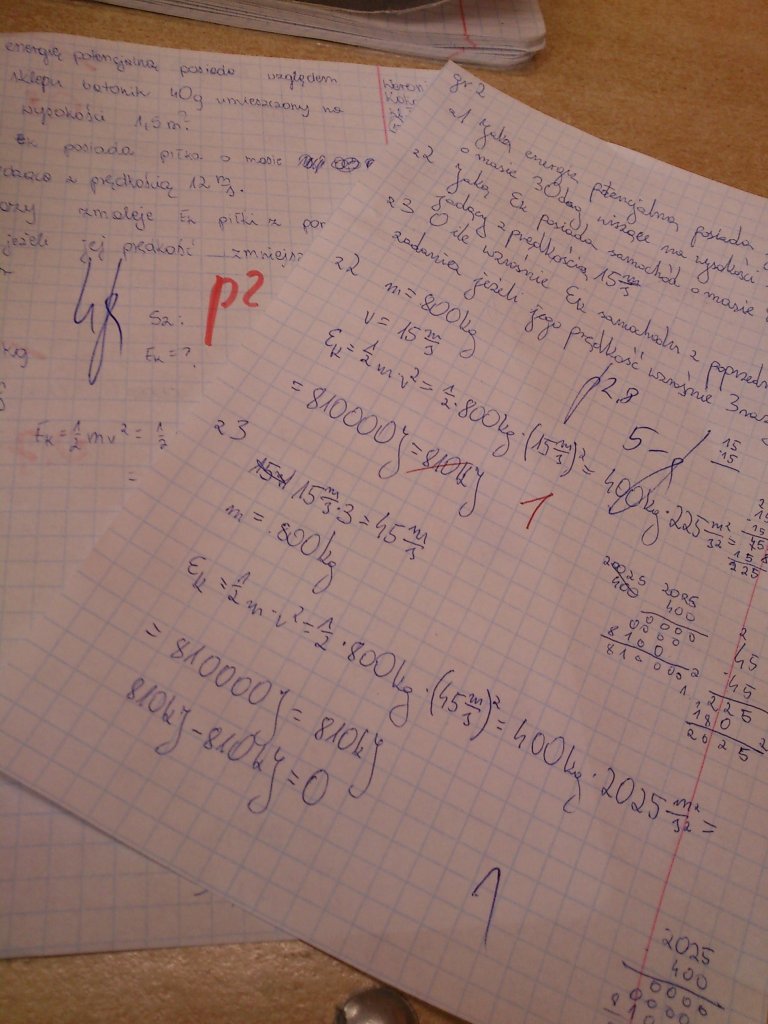 energię potencjalną posiada względem
sklepu batonik 40g umieszczony na
wysokości 1,5m?
Ek posiada piłka o masie
z prędkością 12 m/s.
zmaleje Ek piłki z
jeżeli jej prękość zmniejs
4
S2:
p2
Ek = ?
kg
Ek = 1/2 mv² = 1/2
=
gr 2
z1 Jaką energię potencjalną posiada
o masie 30dag wiszące na wysokości
z2 Jaką Ek posiada samochód o masie
jadący z prędkością 15 m/s
z3 O ile wzrośnie Ek samochodu z poprzedn
zadania jeżeli jego prędkość wzrośnie 3 raz
z2
m = 800kg
v = 15 m/s
Ek = 1/2 m·v² = 1/2 · 800kg · (15 m/s)² = 400kg · 225 m²/s² =
= 810000J = 810kJ
1
p2,8
5-
15
·15
225
z3
15 m/s · 3 = 45 m/s
m = 800kg
Ek = 1/2 m·v² = 1/2 · 800kg · (45 m/s)² = 400kg · 2025 m²/s² =
= 810000J = 810kJ
810kJ - 810kJ = 0
1
20025
400
2025
400
0000
0000
8100
810000
2
45
·45
225
180
2025
2025
400
0000
0000